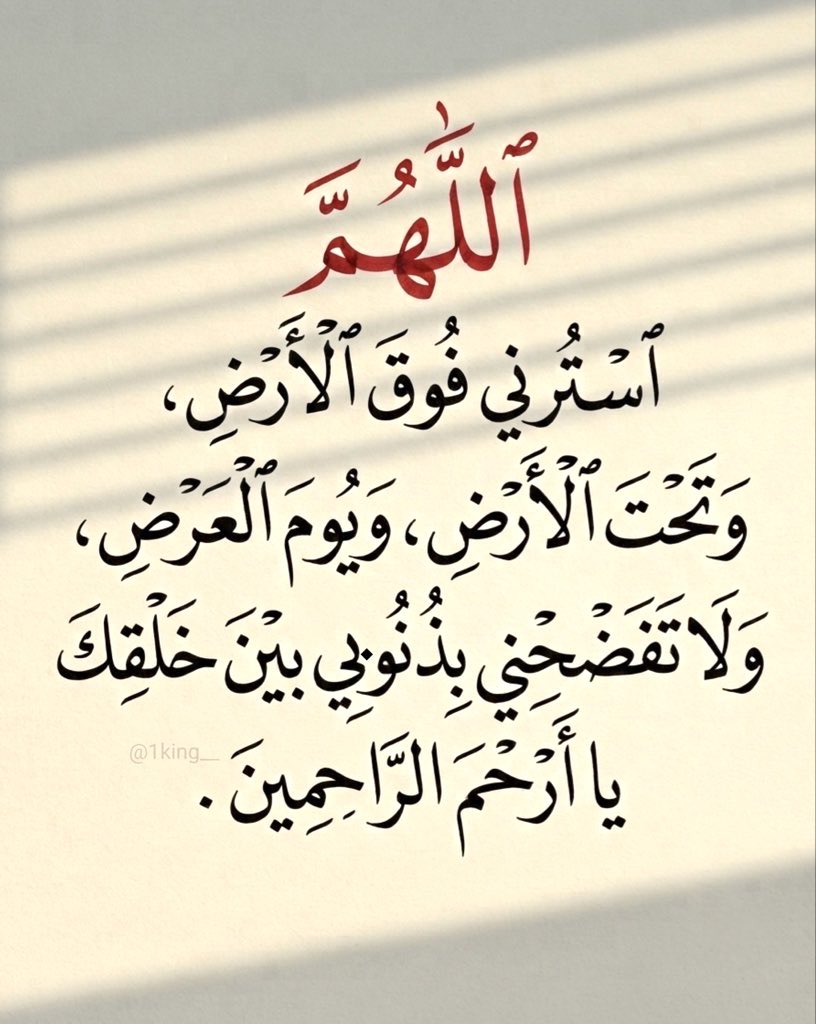 ٱللَّٰهُمَّ
ٱسْتُرنِي فُوقَ ٱلْأَرْضِ،
وَتَحْتَ ٱلْأَرْضِ، وَيُومَ ٱلْعَرْضِ،
وَلَا تَفَضْحْنِي بِذُنُوبِي بيْنَ خَلْقِكَ
@1king__
يا أَرْحْمَ الرَّاحِمِينَ .